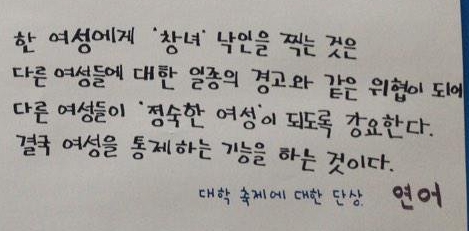 한 여성에게 '창녀' 낙인을 찍는 것은
다른 여성들에 대한 일종의 경고와 같은 위협이 되어
다른 여성들이 '정숙한 여성'이 되도록 강요한다.
결국 여성을 통제하는 기능을 하는 것이다.
대학 축제에 대한 단상. 연어